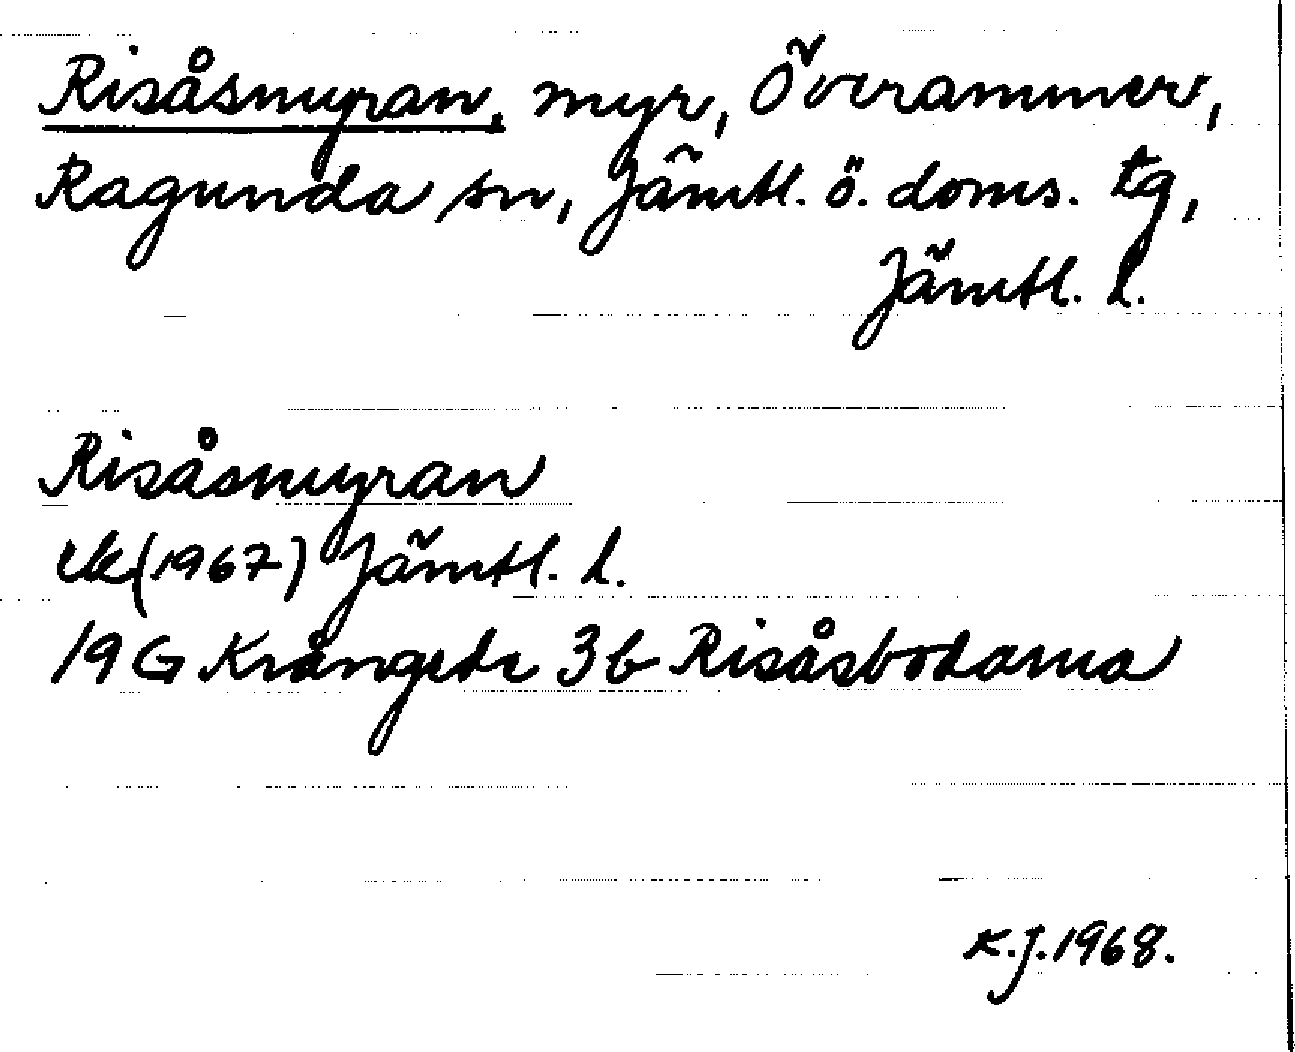 Risåsmyran, myr, Överammer,
Ragunda sn, Jämtl. ö. doms. tg,
Jämtl. l.
Risåsmyran
ek (1967) Jämtl. l.
19 G Krångede 3b Risåsbodarna
K.J. 1968.